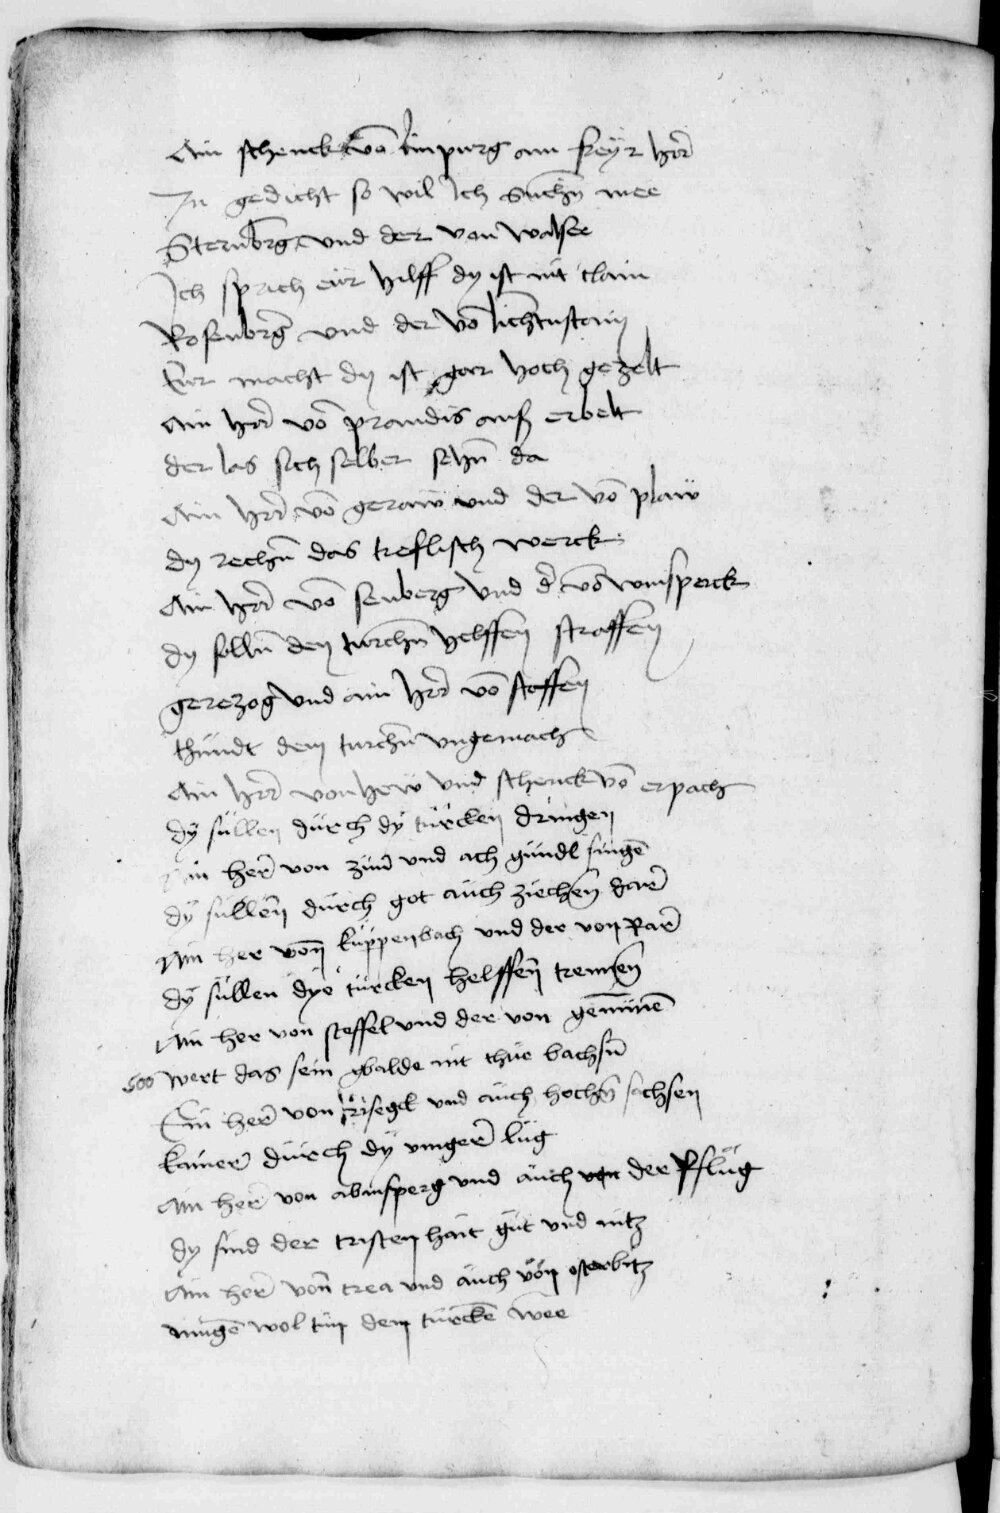 Ain schenck võ limpurg ain freÿr her̄
In gedicht so wil ich suchn̄ mee
Sternbrg und der von walsee
Ich sprich eur hilff dy ist nit clain
Rosenbrg und der võ lichtnstain
Eur macht dy ist gar hoch gezelt
Ain her̄ võ prandis auß erbelt
der las sich selber sehn̄ da
Ain her̄ võ geraw und der võ plaw
dy rechn̄ das treflisch werck
Ain her̄ võ senberg und d̄ võ winsperck
dy solln̄ den turchn̄ helffen straffen
gerezog und ain her̄ võ stoffen
thundt dem turchn̄ ungemach
Ain her̄ von hew und schenck võ erpach
dÿ süllen dürch dÿ türcken dringen
Ain her̄ von zim̄ und ach gündl fingē
dÿ süllen̄ dürch got aüch ziechen̄ dar̄
Ain her von̄ küppenbach und der von Rar̄
dÿ süllen dÿe türcken helffen̄ trennen̄
Ain her von steffel und der von gem̄inē
500 wert das sein gbalde nit thüe bachsn̄
Ein her̄ von krisegck und aüch hochn̄ sachsen
kainer̄ dürch dÿ unger̄ lüg
Ain her̄ von abinsperg und aüch von der Pflüg
dy sind der cristen hait güt und nütz
Ain her̄ von̄ crea und aüch von osterbitz
mügē wol tün dem türckē wee